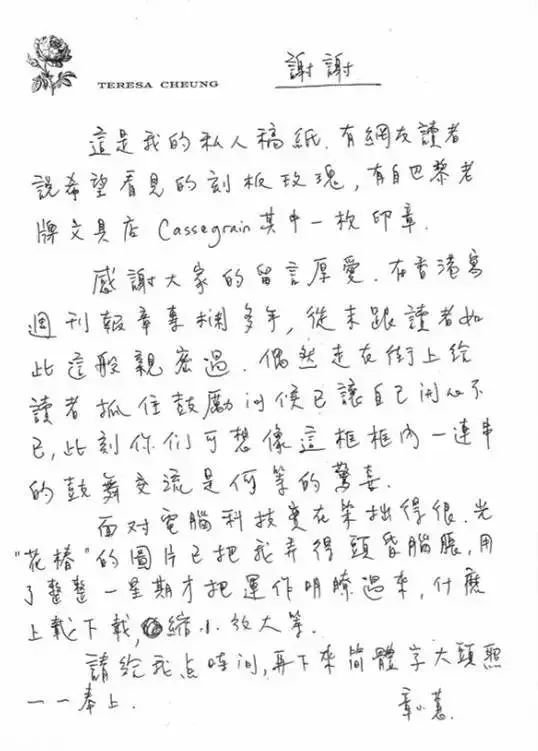 TERESA CHEUNG
謝謝
這是我的私人稿紙．有網友讀者
說希望看見的刻板玫瑰，有自巴黎老
牌文具店 Cassegrain 其中一枚印章．
感謝大家的留言厚愛．在香港寫
週刊報章專欄多年，從未跟讀者如
此這般親密過．偶然走在街上給
讀者抓住鼓勵问侯已讓自己開心不
已，此刻你们可想像這框框內一連串
的鼓舞交流是何等的驚喜．
面对電腦科技實在笨拙得很．光
"花椿"的圖片已把我弄得頭昏腦脹，用
了整整一星期才把運作明瞭過來，什麽
上載下載，縮小放大等．
請給我点時间，再下來简體字大頭照
一一奉上．
章小蕙．